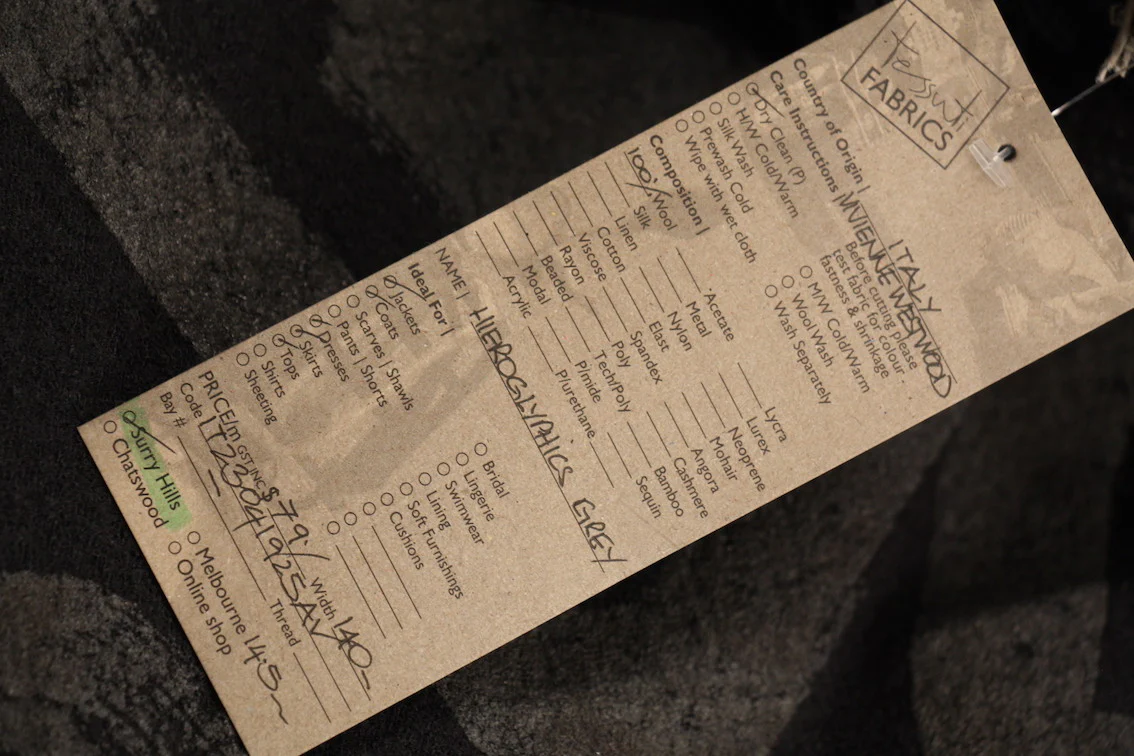 tessuti
FABRICS
Country of Origin | ITALY
VIVIENNE WESTWOOD
Care Instructions |
Before cutting please
test fabric for colour
fastness & shrinkage
Dry Clean (P)
H/W Cold/Warm
Silk Wash
Prewash Cold
Wipe with wet cloth
M/W Cold/Warm
Wool Wash
Wash Separately
Composition |
100% Wool
Silk
Linen
Cotton
Viscose
Rayon
Beaded
Modal
Acrylic
Acetate
Metal
Nylon
Elast
Spandex
Poly
Tech/Poly
P/mide
P/urethane
Lycra
Lurex
Neoprene
Mohair
Angora
Cashmere
Bamboo
Sequin
NAME | HIEROGLYPHICS GREY
Ideal For |
Jackets
Coats
Scarves | Shawls
Pants | Shorts
Dresses
Skirts
Tops
Shirts
Sheeting
Bridal
Lingerie
Swimwear
Lining
Soft Furnishings
Cushions
PRICE/m GST INC $79/ Width 140
Code | Thread
Bay #
Surry Hills
Chatswood
Melbourne
Online shop